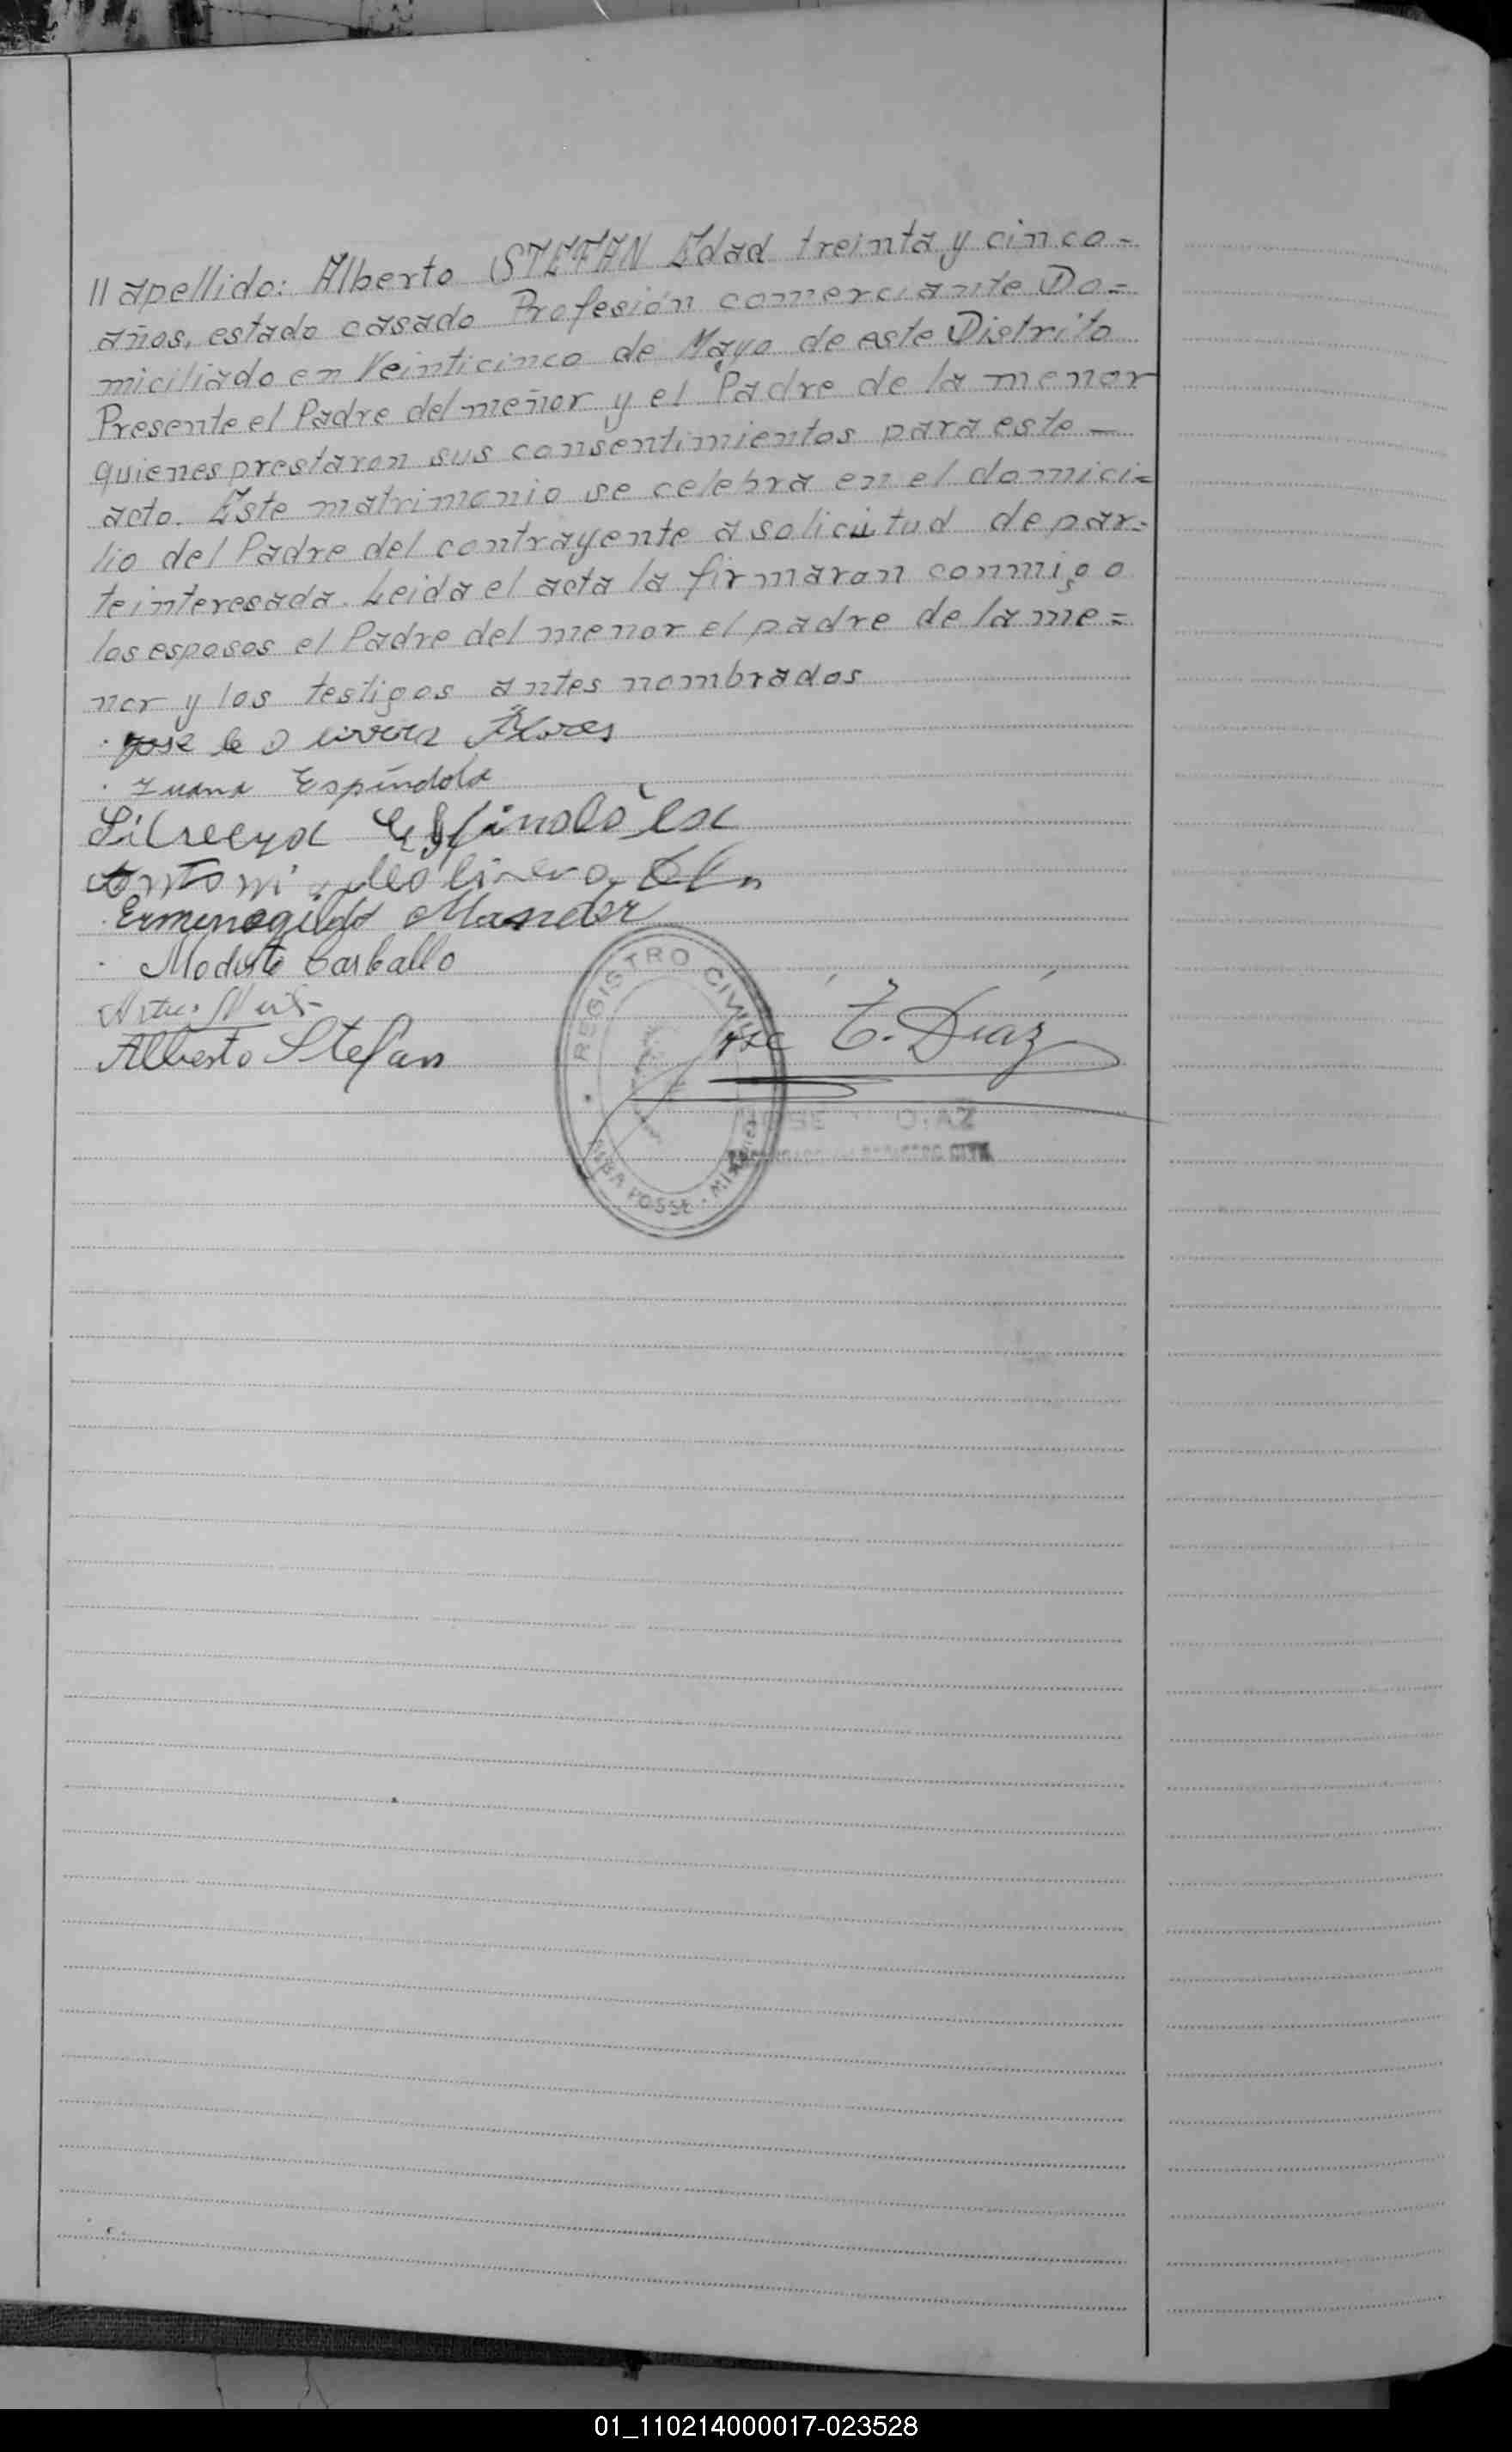 // apellido: Alberto STEFAN Edad treinta y cinco =
años, estado casado Profesión comerciante Do =
miciliado en Veinticinco de Mayo de este Distrito
Presente el Padre del meñor y el Padre de la menor
quienes prestaron sus consentimientos para este —
acto. Este matrimonio se celebra en el domici =
lio del Padre del contrayente a solicitud de par =
te interesada. Leida el acta la firmaron conmigo
los esposos el Padre del menor el padre de la me =
nor y los testigos antes nombrados
Jose Flores
Juana Espíndola
Erminegildo
Modesto Carballo
Alberto Stefan
T. Díaz
REGISTRO CIVIL
ALBA POSSE - MISIONES
JOSE DIAZ
REGISTRO CIVIL
01_110214000017-023528